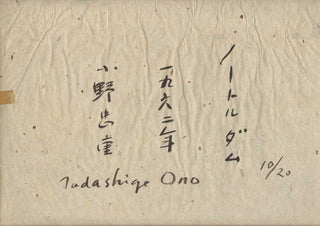 ノートルダム
一九六二年
小野忠重
Tadashige Ono
10/20